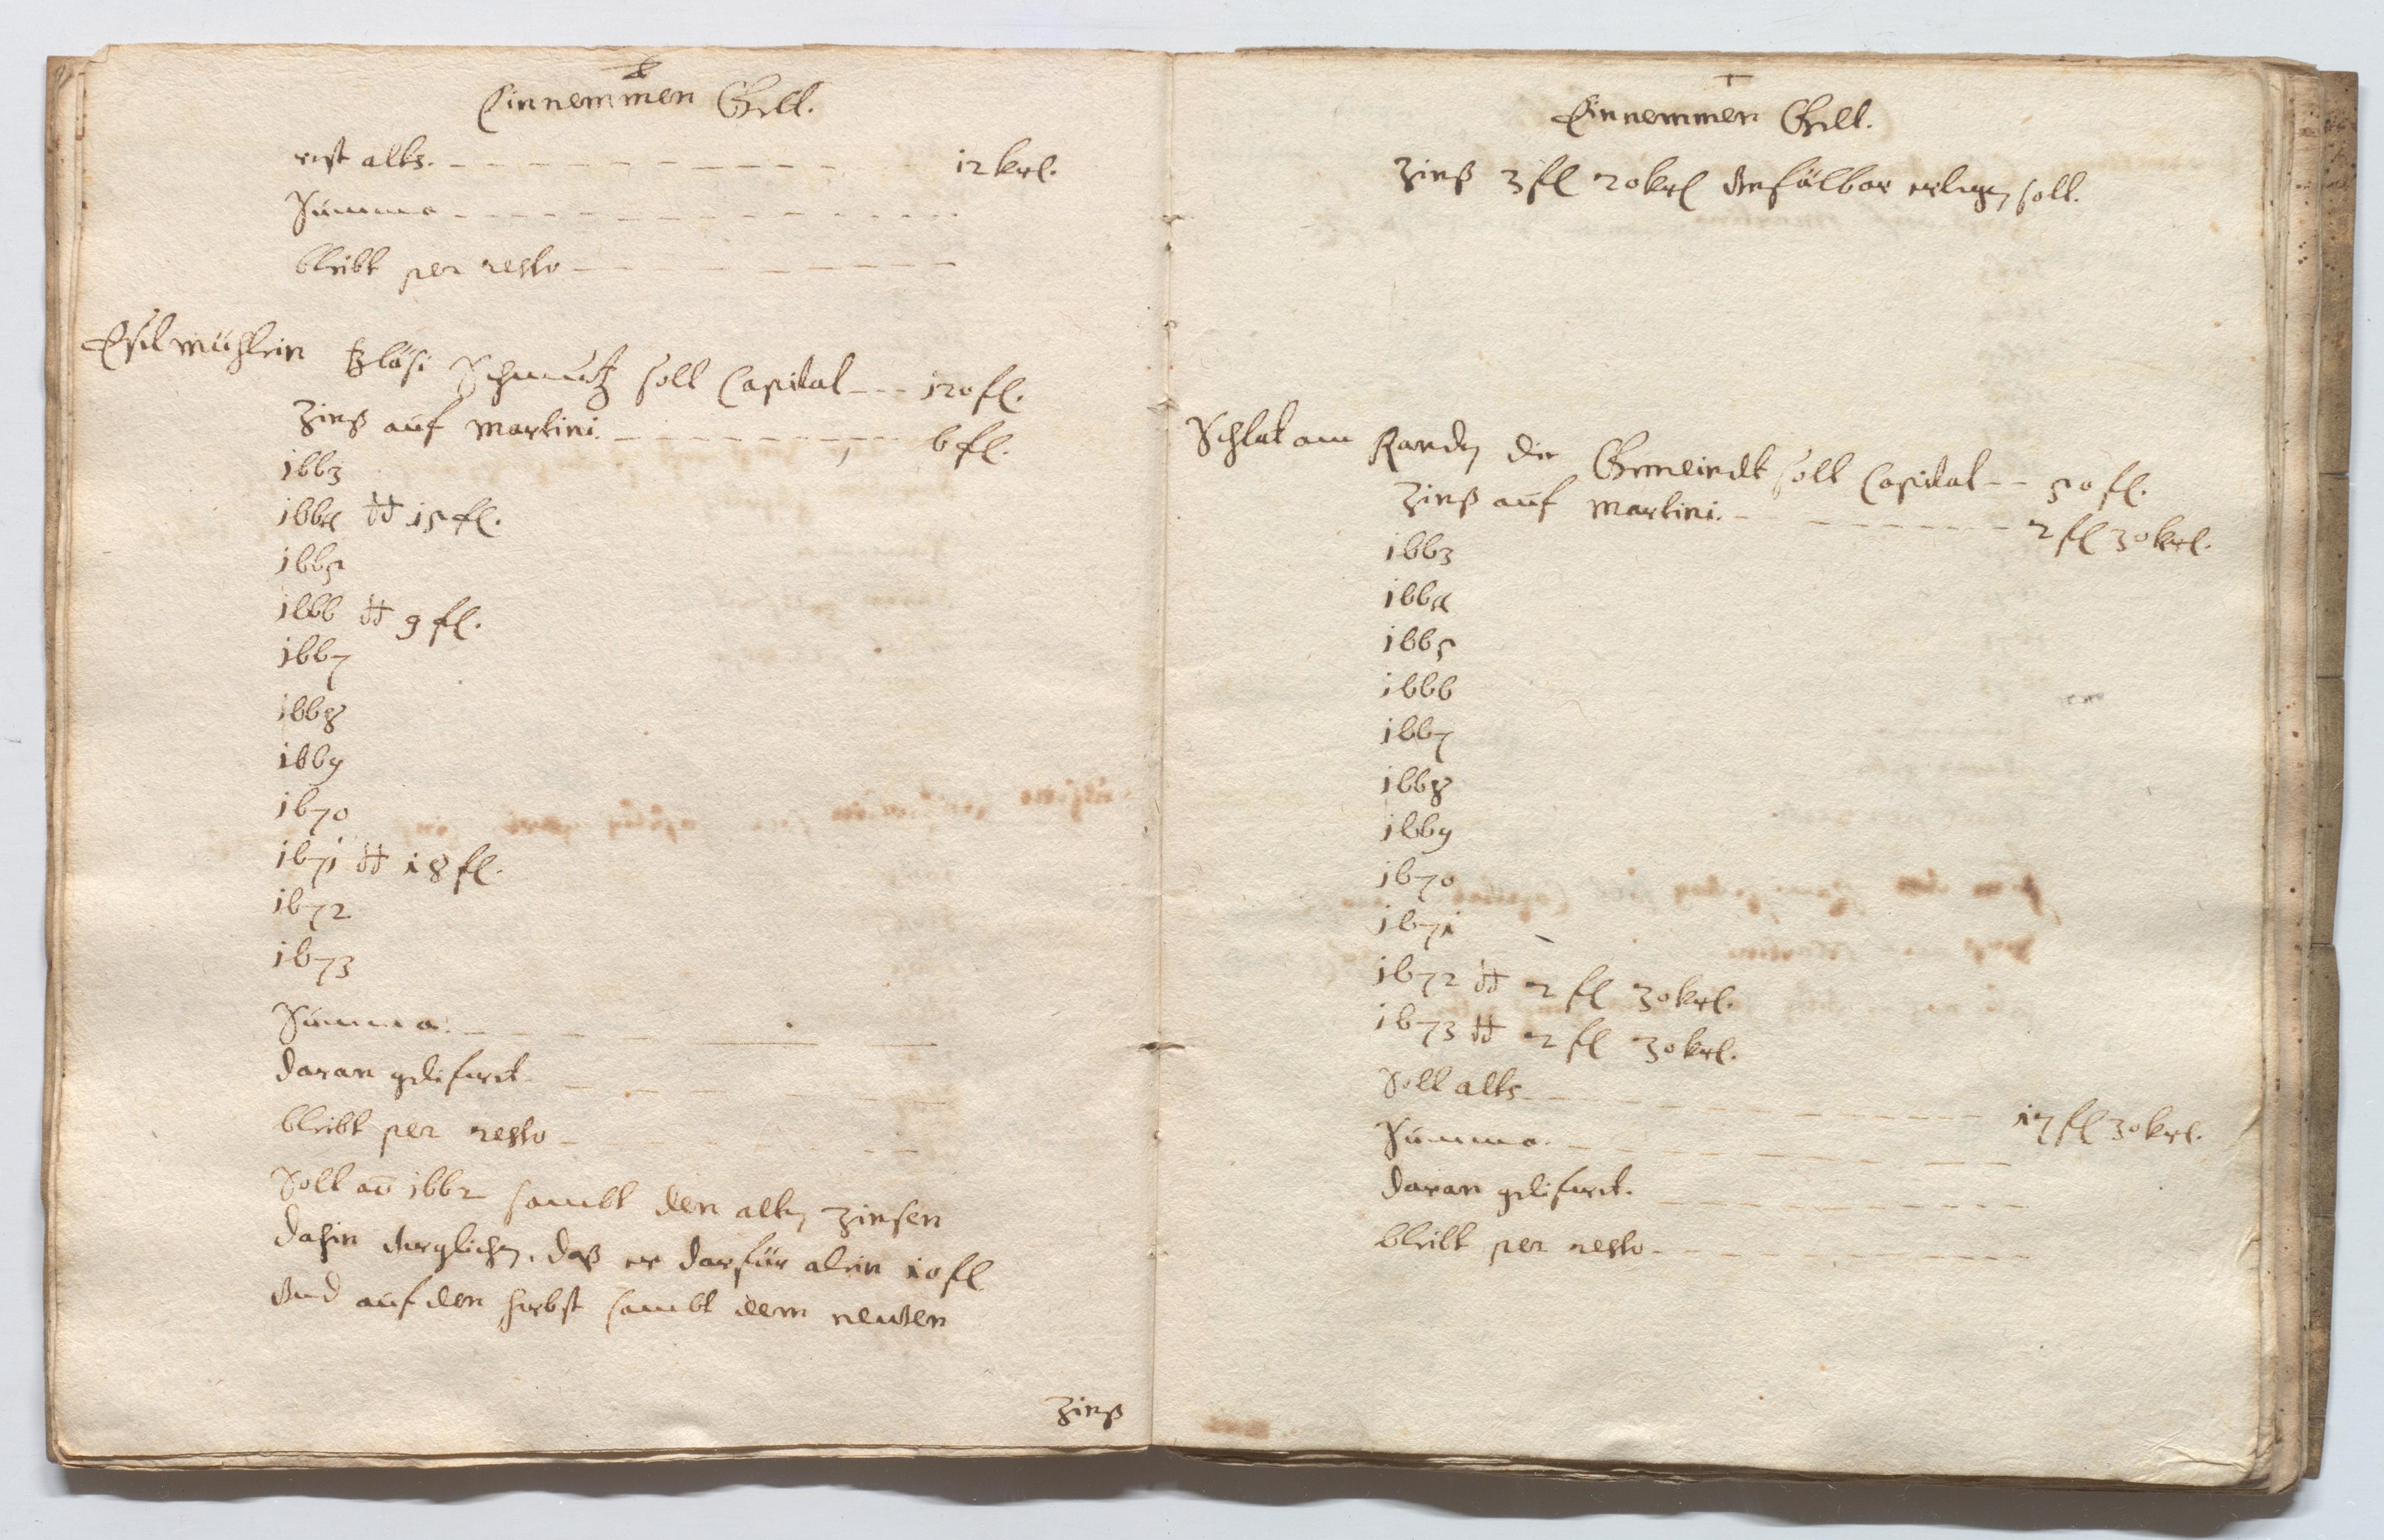 Einnemmen Gelt.
rest alts. 12 krl.
Summa
bleibt per resto
Eselmühlein Bläsi Schmutz soll Capital 120 fl.
Zinß auf Martini. 6 fl.
1663
1664 dt 15 fl.
1665
1666 dt 9 fl.
1667
1668
1669
1670
1671 dt 18 fl.
1672
1673
Summa.
daran geliefert
bleibt per resto
Soll ao 1662 sambt den alten Zinsen
dahin verglichen, daß er darfür alein 10 fl
vnd auf den herbst sambt dem neuwen
Zinß
Einnemmen Gelt.
Zinß 3 fl 20 krl vnfälbar erlegen soll.
Schlat am Randen die Gemeindt soll Capital 50 fl.
Zinß auf Martini. 2 fl 30 krl.
1663
1664
1665
1666
1667
1668
1669
1670
1671
1672 dt 2 fl 30 krl.
1673 dt 2 fl 30 krl.
Soll alts 17 fl 30 krl.
Summa.
daran geliefert.
bleibt per resto